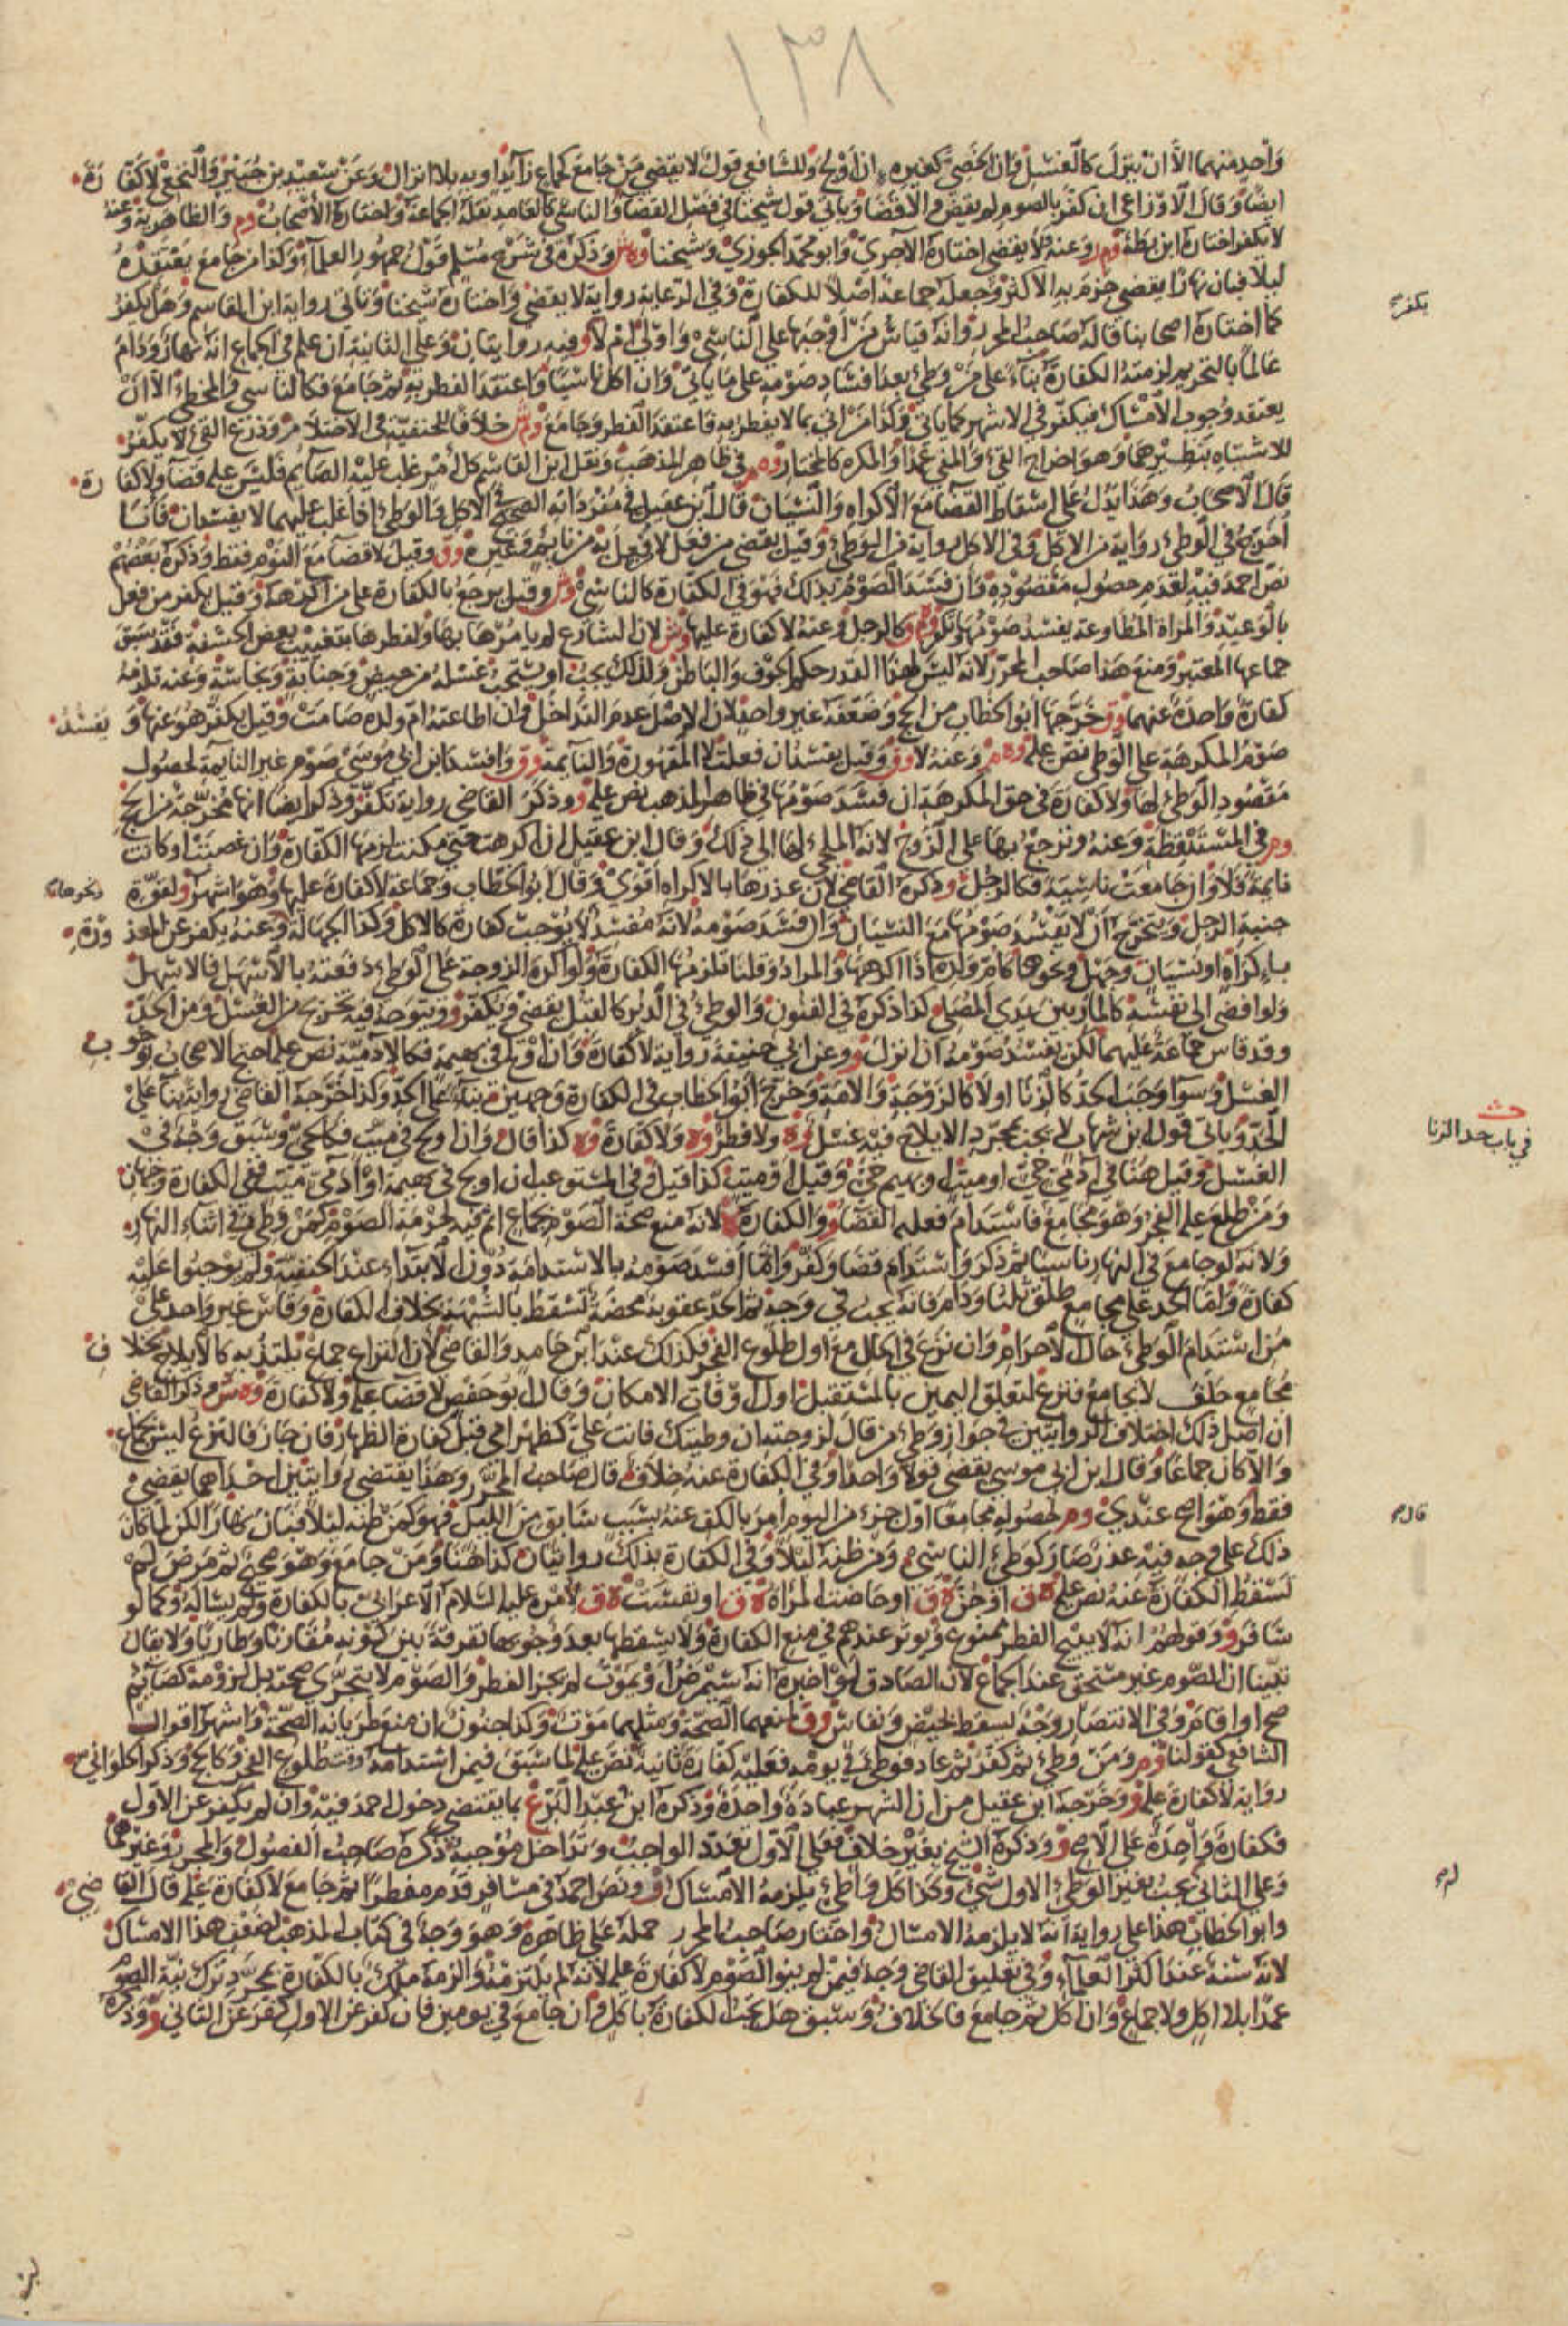 ١٣٨
واحد منهما الا ان ينزل كالغسل وان الخصي كغيره ان اولج وللشافعي قول لا يقضي من جامع كجماع زايد او به بلا انزال وعن سعيد بن جبير والنخعي لا كفارة
ايضا وقال الاوزاعي ان كفر بالصوم لم يقض والا قضا وياتي قول شيخنا في فصل القضا والناسي كالعامد نقله الجماعة واختاره الاصحاب وم والظاهرية وعنه
لا يكفر اختاره ابن بطة وم ر وعنه ولا يقضي اختاره الاجري وابو محمد الجوزي وشيخنا وه ش وذكره في شرح مسلم قول جمهور العلماء وكذا من جامع يعتقده
ليلا فبان نهارا يقضي جزم به الاكثر وجعله جماعة اصلا للكفارة وفي الرعاية رواية لا يقضي واختاره شيخنا وتاتي رواية ابن القاسم وهل يكفر
كما اختاره اصحابنا قاله صاحب المحرر وانه قياس من اوجبها على الناسي واولى ام لا وفيه روايتان وعلى الثانية ان علم في الجماع انه نهار ودام
عالما بالتحريم لزمته الكفارة بناء على من وطئ بعد افساد صومه على ما ياتي وان اكل ناسيا واعتقد الفطر به ثم جامع فكالناسي والمخطئ الا ان
يعتقد وجوب الامساك فيكفر في الاشهر كما ياتي وكذا من اتى بما لا يفطر به فاعتقد الفطر وجامع وم ش خلافا للحنفية في الاحتلام وذرع القيء لا يكفر
للاشتباه بنظيرهما وهو اخراج القيء والمني عمدا والمكره كالمختار وه م في ظاهر المذهب ونقل ابن القاسم كل امر غلب عليه الصايم فليس عليه قضا ولا كفارة
قال الاصحاب وهذا يدل على اسقاط القضا مع الاكراه والنسيان قال ابن عقيل في مفرداته الصحيح في الاكل والوطئ اذا غلب عليهما لا يفسدان فانا
اخرج في الوطئ رواية من الاكل وفي الاكل رواية من الوطئ وقيل يقضي من فعل لا فعل به من نايم وغيره وق وقيل لا قضا مع النوم فقط وذكره بعضهم
نص احمد فيه لعدم حصول مقصوده وان فسد الصوم بذلك فهو في الكفارة كالناسي وش وقيل يرجع بالكفارة على من اكرهه وقيل يكفر من فعل
بالوعيد والمراة المطاوعة يفسد صومها وتكفر وه م كالرجل وعنه لا كفارة عليها وش لان الشارع لم يامرها بها ولفطرها بتغييب بعض الحشفة فقد سبق
جماعها المعتبر ومنع هذا صاحب المحرر لانه ليس لهذا القدر حكم الجوف والباطن ولذلك يجب او يستحب غسله من حيض وجنابة ونجاسة وعنه تلزمه
كفارة واحدة عنهما وق خرجها ابو الخطاب من الحج وضعفه غير واحد لان الاصل عدم التداخل وان اطاعته ام ولده صامت وقيل يكفر هو عنها ويفسد
صوم المكرهة على الوطئ نص عليه وه م وعنه لا وق وقيل يفسد ان فعلت لا المقهورة والنايمة وق وافسد ابن ابي موسى صوم غير النايمة لحصول
مقصود الوطئ لها ولا كفارة في حق المكرهة ان فسد صومها في ظاهر المذهب نص عليه وو وذكر القاضي رواية تكفر وذكر ايضا انها مخرجة من الحج
وم ر في المستيقظة وعنه وترجع بها على الزوج لانه الملجئ لها الى ذلك وقال ابن عقيل ان اكرهت حتى مكنت لزمها الكفارة وان غصبت او كانت
نايمة فلا وان جامعت ناسية فكالرجل وذكره القاضي لان عذرها بالاكراه اقوى وقال ابو الخطاب وجماعة لا كفارة عليها وهو اشهر ولقوة
جنبة الرجل ويتخرج ان لا يفسد صومها مع النسيان وان فسد صومه لانه مفسد لا يوجب كفارة كالاكل وكذا الجهالة وعنه يكفر عن المعذورة
باكراه او نسيان وجهل ونحوها كام ولده اذا اكرهها والمراد وقلنا تلزمها الكفارة ولو اكره الزوجة على الوطئ دفعته بالاسهل فالاسهل
ولو افضى الى نفسه كالمار بين يدي المصلي كذا ذكره في الفنون والوطئ في الدبر كالقبل يقضي ويكفر وو ويتوجه فيه تخريج من الغسل ومن الحد
وقد قاس جماعة عليهما لكن يفسد صومه ان انزل وو وعن ابي حنيفة رواية لا كفارة وان اولج في بهيمة فكالادمية نص عليه احتج الاصحاب بوجوب
الغسل وسوا وجب الحد كالزنا او لا كالزوجة والامة وخرج ابو الخطاب في الكفارة وجهين بناء على الحد وكذا خرجه القاضي رواية بناء على
الحد وياتي قول ابن شهاب لا يجب بمجرد الايلاج فيه غسل وه ولا فطر وه ولا كفارة وه كذا قال وان اولج في ميت فكالحي وسبق وجه في
الغسل وقيل هنا في ادمي حي او ميت او بهيم حي وقيل او ميت كذا قيل وفي المستوعب ان اولج في بهيمة او ادمي ميت ففي الكفارة وجهان
ومن طلع عليه الفجر وهو مجامع فاستدام فعليه القضا وو والكفارة لانه منع صحة الصوم بجماع اثم فيه لحرمة الصوم كمن وطئ في اثناء النهار
ولانه لو جامع في النهار ناسيا ثم ذكر واستدام قضا وكفر وانما افسد صومه بالاستدامة دون الابتداء عند الحنفية ولم يوجبوا عليه
كفارة واما الحد على مجامع طلق ثلثا ودام فانه يجب في وجه ثم الحد عقوبة محضة تسقط بالشبهة بخلاف الكفارة وقاس غير واحد على
من استدام الوطئ حال الاحرام وان نزع في الحال مع اول طلوع الفجر فكذلك عند ابن حامد والقاضي لان النزاع جماع يلتذ به كالايلاج بخلاف
مجامع حلف لا يجامع فنزع لتعلق اليمين بالمستقبل اول اوقات الامكان وقال ابو حفص لا قضا عليه ولا كفارة وه ش وذكر القاضي
ان اصل ذلك اختلاف الروايتين في جواز وطئ من قال لزوجته ان وطيتك فانت علي كظهر امي قبل كفارة الظهار فان جاز فالنزع ليس بجماع
والا كان جماعا وقال ابن ابي موسى يقضي قولا واحدا وفي الكفارة عنه خلاف قال صاحب المحرر وهذا يقتضي روايتين احداهما يقضي
فقط وهو اصح عندي وم ر لحصوله مجامعا اول جزء من اليوم امر بالكف عنه بسبب سابق من الليل فهو كمن ظنه ليلا فبان نهارا لكن لما كان
ذلك على وجه فيه عذر صار كوطئ الناسي ومن ظنه ليلا وفي الكفارة بذلك روايتان كذا هنا ومن جامع وهو صحيح ثم مرض لم
تسقط الكفارة عنه نص عليه ه ق او جن ه ق او حاضت المراة ه ق او نفست ه ق لامره عليه السلام الاعرابي بالكفارة ولم يساله وكما لو
سافر وو وقولهم انه لا يبيح الفطر ممنوع ويوثر عندهم في منع الكفارة ولا يسقطها بعد وجوبها تفرقة بين كونه مقارنا وطاريا ولا يقال
تبينا ان الصوم غير مستحق عند الجماع لان الصادق لو اخبره انه سيمرض او يموت لم يجز الفطر والصوم لا يتجزى صحته بل لزومه كصايم
صح او اقام وفي الانتصار وجه يسقط بحيض ونفاس وق لمنعهما الصحة ومثلهما موت وكذا جنون ان منع طريانه الصحة واشهر اقوال
الشافعي كقولنا وم ر ومن وطئ ثم كفر ثم عاد فوطئ في يومه فعليه كفارة ثانية نص عليه لما سبق فيمن استدامه وقت طلوع الفجر وكالحج وذكر الحلواني
رواية لا كفارة عليه وو وخرجه ابن عقيل من ان الشهر عبادة واحدة وذكره ابن عبد البر ع بما يقتضي دخول احمد فيه وان لم يكفر عن الاول
فكفارة واحدة على الاصح وو وذكره الشيخ بغير خلاف فعلى الاول تعدد الواجب وتداخل موجبه ذكره صاحب الفصول والمحرر وغيرهما
وعلى الثاني يجب بغير الوطئ الاول شيء وكذا كل واطئ يلزمه الامساك وو ونص احمد في مسافر قدم مفطرا ثم جامع لا كفارة عليه قال القاضي
وابو الخطاب هذا على رواية انه لا يلزمه الامساك واختار صاحب المحرر حمله على ظاهره وهو وجه في كتاب المذهب لضعف هذا الامساك
لانه سنة عند اكثر العلماء وفي تعليق القاضي وجه فيمن لم ينو الصوم لا كفارة عليه لانه لم يلتزمه والزمه ملك بالكفارة بمجرد ترك نية الصوم
عمدا بلا اكل ولا جماع وان اكل ثم جامع فالخلاف وسبق هل تجب الكفارة باكل وان جامع في يومين فان كفر عن الاول كفر عن الثاني وو وذكره
يكفر
ونحوها
في باب حد الزنا
قال